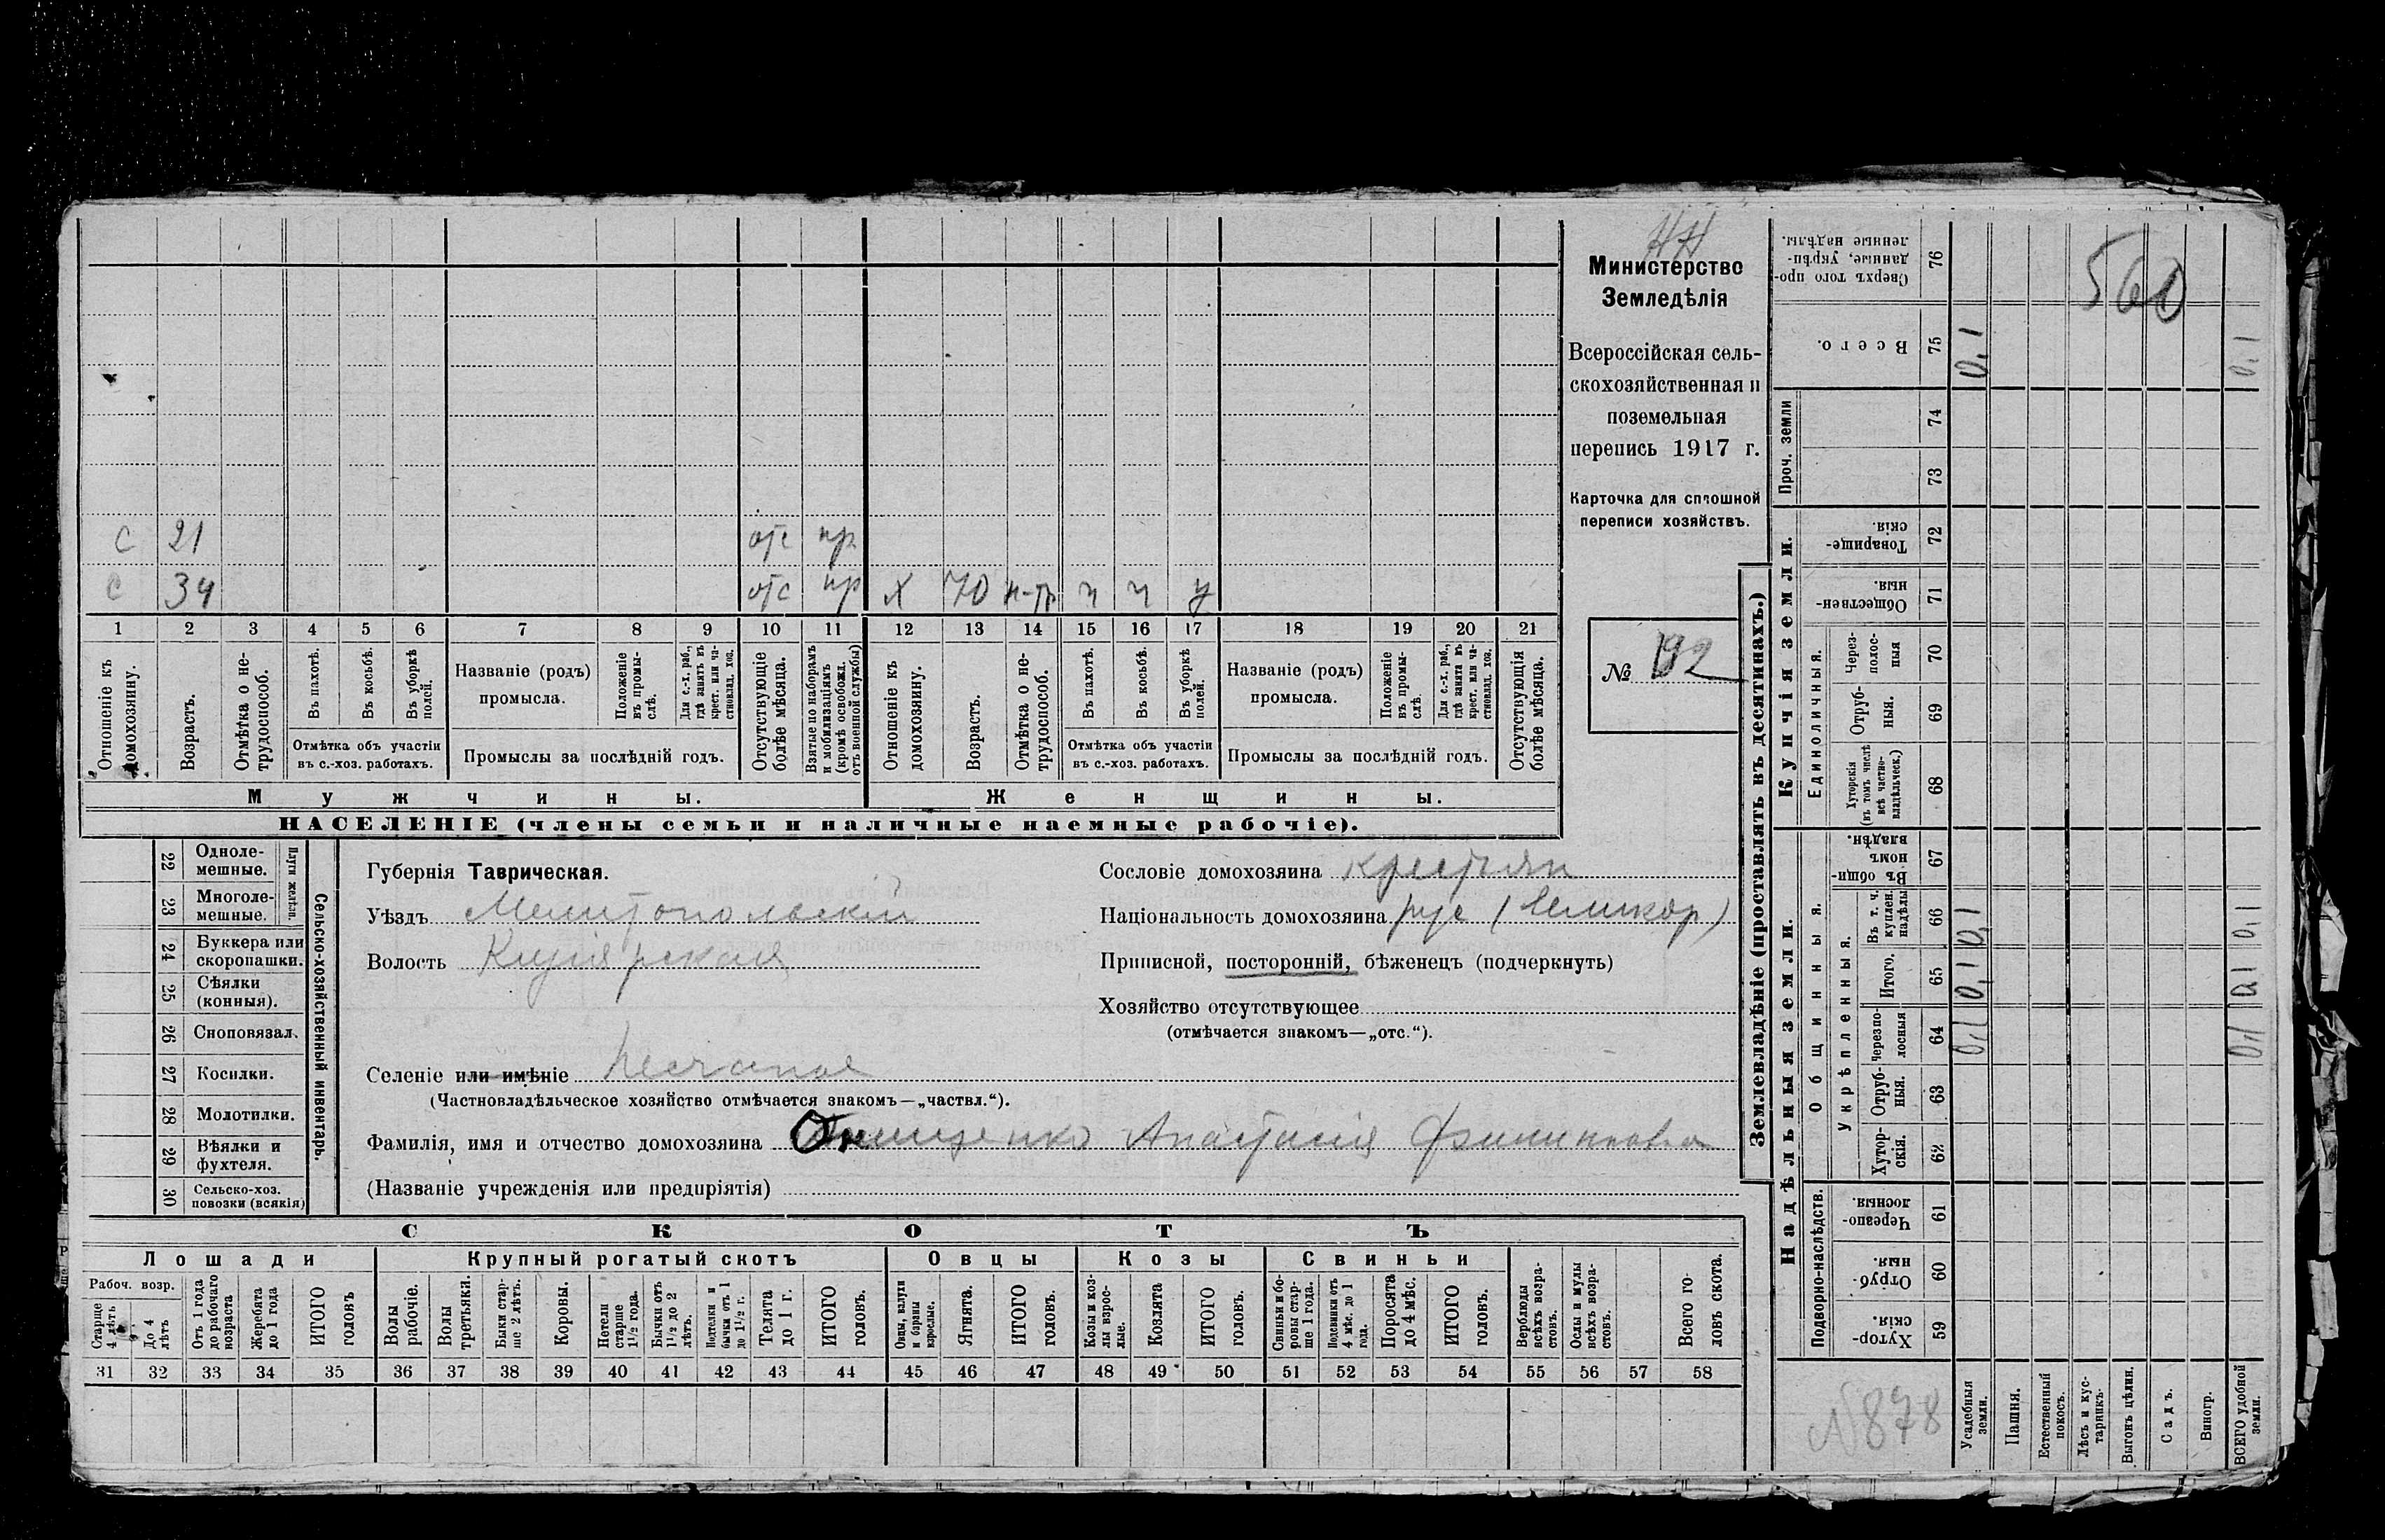 НН
Министерство
Земледѣлія
Всероссійская сель-
скохозяйственная и
поземельная
перепись 1917 г.
Карточка для сплошной
переписи хозяйствъ.
№ 192
С 21 отс пр
С 34 отс пр Х 70 н-тр ч ч у
1 2 3 4 5 6 7 8 9 10 11 12 13 14 15 16 17 18 19 20 21
Отношеніе къ домохозяину.
Возрастъ.
Отмѣтка о не-трудоспособ.
Въ пахотѣ.
Въ косьбѣ.
Въ уборкѣ полей.
Отмѣтка объ участіи
въ с.-хоз. работахъ.
Названіе (родъ)
промысла.
Положеніе въ промы-слѣ.
Для с.-х. раб., гдѣ занятъ въ крест. или ча-стновлад. хоз.
Промыслы за послѣдній годъ.
Отсутствующіе болѣе мѣсяца.
Взятые по наборамъ и мобилизаціямъ (кромѣ освобожд. отъ военной службы)
Отношеніе къ домохозяину.
Возрастъ.
Отмѣтка о не-трудоспособ.
Въ пахотѣ.
Въ косьбѣ.
Въ уборкѣ полей.
Отмѣтка объ участіи
въ с.-хоз. работахъ.
Названіе (родъ)
промысла.
Положеніе въ промы-слѣ
Для с.-х. раб., гдѣ занята въ крест. или ча-стновлад. хоз.
Промыслы за послѣдній годъ.
Отсутствующія болѣе мѣсяца.
Мужчины.
Женщины.
НАСЕЛЕНІЕ (члены семьи и наличные наемные рабочіе).
Сельско-хозяйственный инвентарь.
Плуги желѣзн.
22 Одноле-мешные.
23 Многоле-мешные.
24 Буккера или скоропашки.
25 Сѣялки (конныя).
26 Сноповязал.
27 Косилки.
28 Молотилки.
29 Вѣялки и фухтеля.
30 Сельско-хоз. повозки (всякія)
Губернія Таврическая.
Уѣздъ Мелитопольскій
Волость Кизіярская
Селеніе или имѣніе Песчаное
(Частновладѣльческое хозяйство отмѣчается знакомъ—„частвл.“).
Фамилія, имя и отчество домохозяина Онищенко Анастасія Филипповна
(Названіе учрежденія или предпріятія)
Сословіе домохозяина крестьян
Національность домохозяина рус (великор)
Приписной, посторонній, бѣженецъ (подчеркнуть)
Хозяйство отсутствующее
(отмѣчается знакомъ—„отс.“).
СКОТЪ
Лошади
Крупный рогатый скотъ
Овцы
Козы
Свиньи
Рабоч. возр.
Старше 4 лѣтъ
До 4 лѣтъ
Отъ 1 года до рабочаго возраста
Жеребята до 1 года
ИТОГО головъ
Волы рабочіе.
Волы третьяки.
Быки стар-ше 2 лѣтъ.
Коровы.
Нетели старше 1½ года.
Бычки отъ 1½ до 2 лѣтъ.
Подтелки и бычки отъ 1 до 1½ г.
Телята до 1 г.
ИТОГО головъ.
Овцы, валухи и бараны взрослые.
Ягнята.
ИТОГО головъ.
Козы и коз-лы взрос-лые.
Козлята
ИТОГО головъ.
Свиньи и бо-ровы стар-ше 1 года.
Подсвинки отъ 4 мѣс. до 1 года.
Поросята до 4 мѣс.
ИТОГО головъ.
Верблюды всѣхъ возра-стовъ.
Ослы и мулы всѣхъ возра-стовъ.
Всего го-ловъ скота.
31 32 33 34 35 36 37 38 39 40 41 42 43 44 45 46 47 48 49 50 51 52 53 54 55 56 57 58
Землевладѣніе (проставлять въ десятинахъ.)
Надѣльныя земли.
Подворно-наслѣдств.
Хутор-скія. 59
Отруб-ныя. 60
Черезпо-лосныя. 61
Общинныя.
Укрѣпленныя.
Хутор-скія. 62
Отруб-ныя. 63
Черезпо-лосныя 64
Итого. 65
Въ т. ч. куплен. надѣлы 66
Въ общин-номъ владѣн. 67
Купчія земли.
Единоличныя.
Хуторскія (въ томъ числѣ всѣ частно-владѣльческ.) 68
Отруб-ныя. 69
Через-полос-ныя 70
Обществен-ныя. 71
Товарище-скія. 72
Проч. земли
73
74
Всего. 75
Сверхъ того про-данные, укрѣп-ленные надѣлы. 76
Усадебныя земли. 0,1 0,1 0,1 0,1
Пашня.
Естественный покосъ.
Лѣсъ и кус-тарникъ.
Выгонъ цѣлин.
Садъ.
Виногр.
ВСЕГО удобной земли. 0,1 0,1 0,1 0,1
560
№878